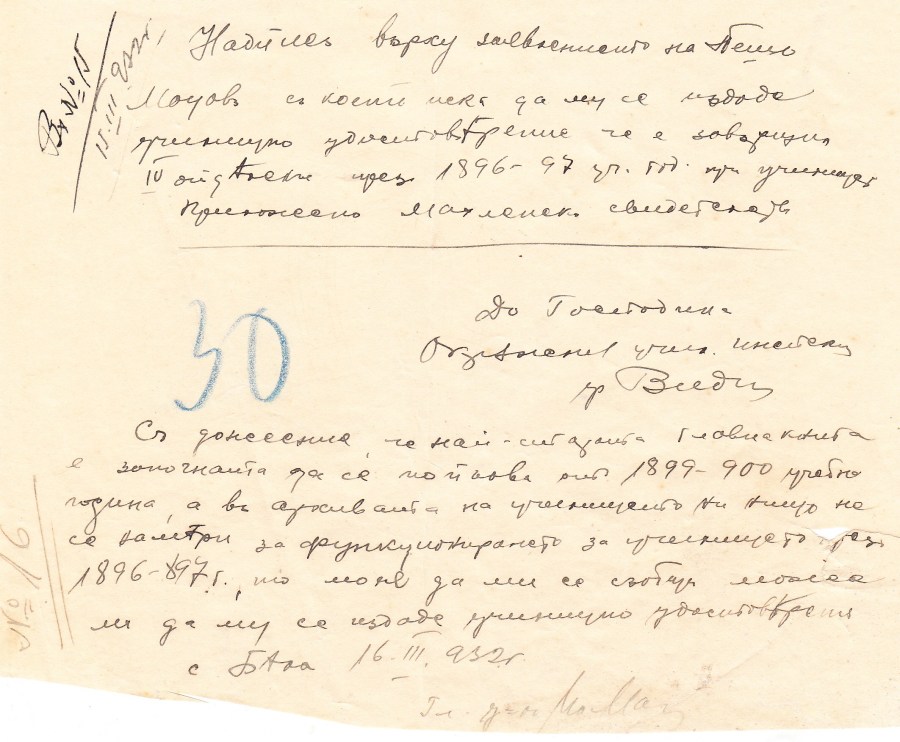 Вх № 15
15.III.932 г.
Надпись върху заявлението на Пецо
Моцовъ съ които иска да му се издаде
училищно удостовѣрение че е завършил
IV отдѣление през 1896-97 уч. год. при училището
Приложено Махленско свидетелств
30
До Господина
Окрѫжния учил. инспектор
гр Видин
Съ донесение, че най-старата главна книга
е започната да се ползова отъ 1899-900 учебна
година, а въ архивата на училището ни нищо не
се намѣри за функционирането за училището през
1896-897 г., то моля да ми се съобщи може
ли да му се издаде училищно удостовѣрение
№ 16
с 16.III.932 г.
Гл. уч-л